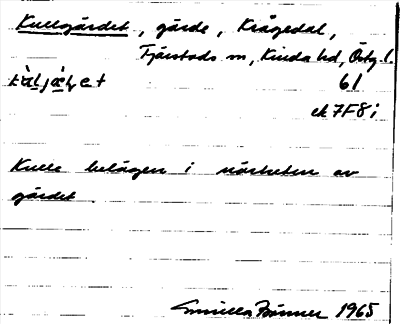 Kullgärdet, gärde, Krågedal,
Tjärstads sn, Kinda hd, Östg. l.
61
ek 7F8i
Kulle belägen i närheten av
gärdet
Gunilla 1965